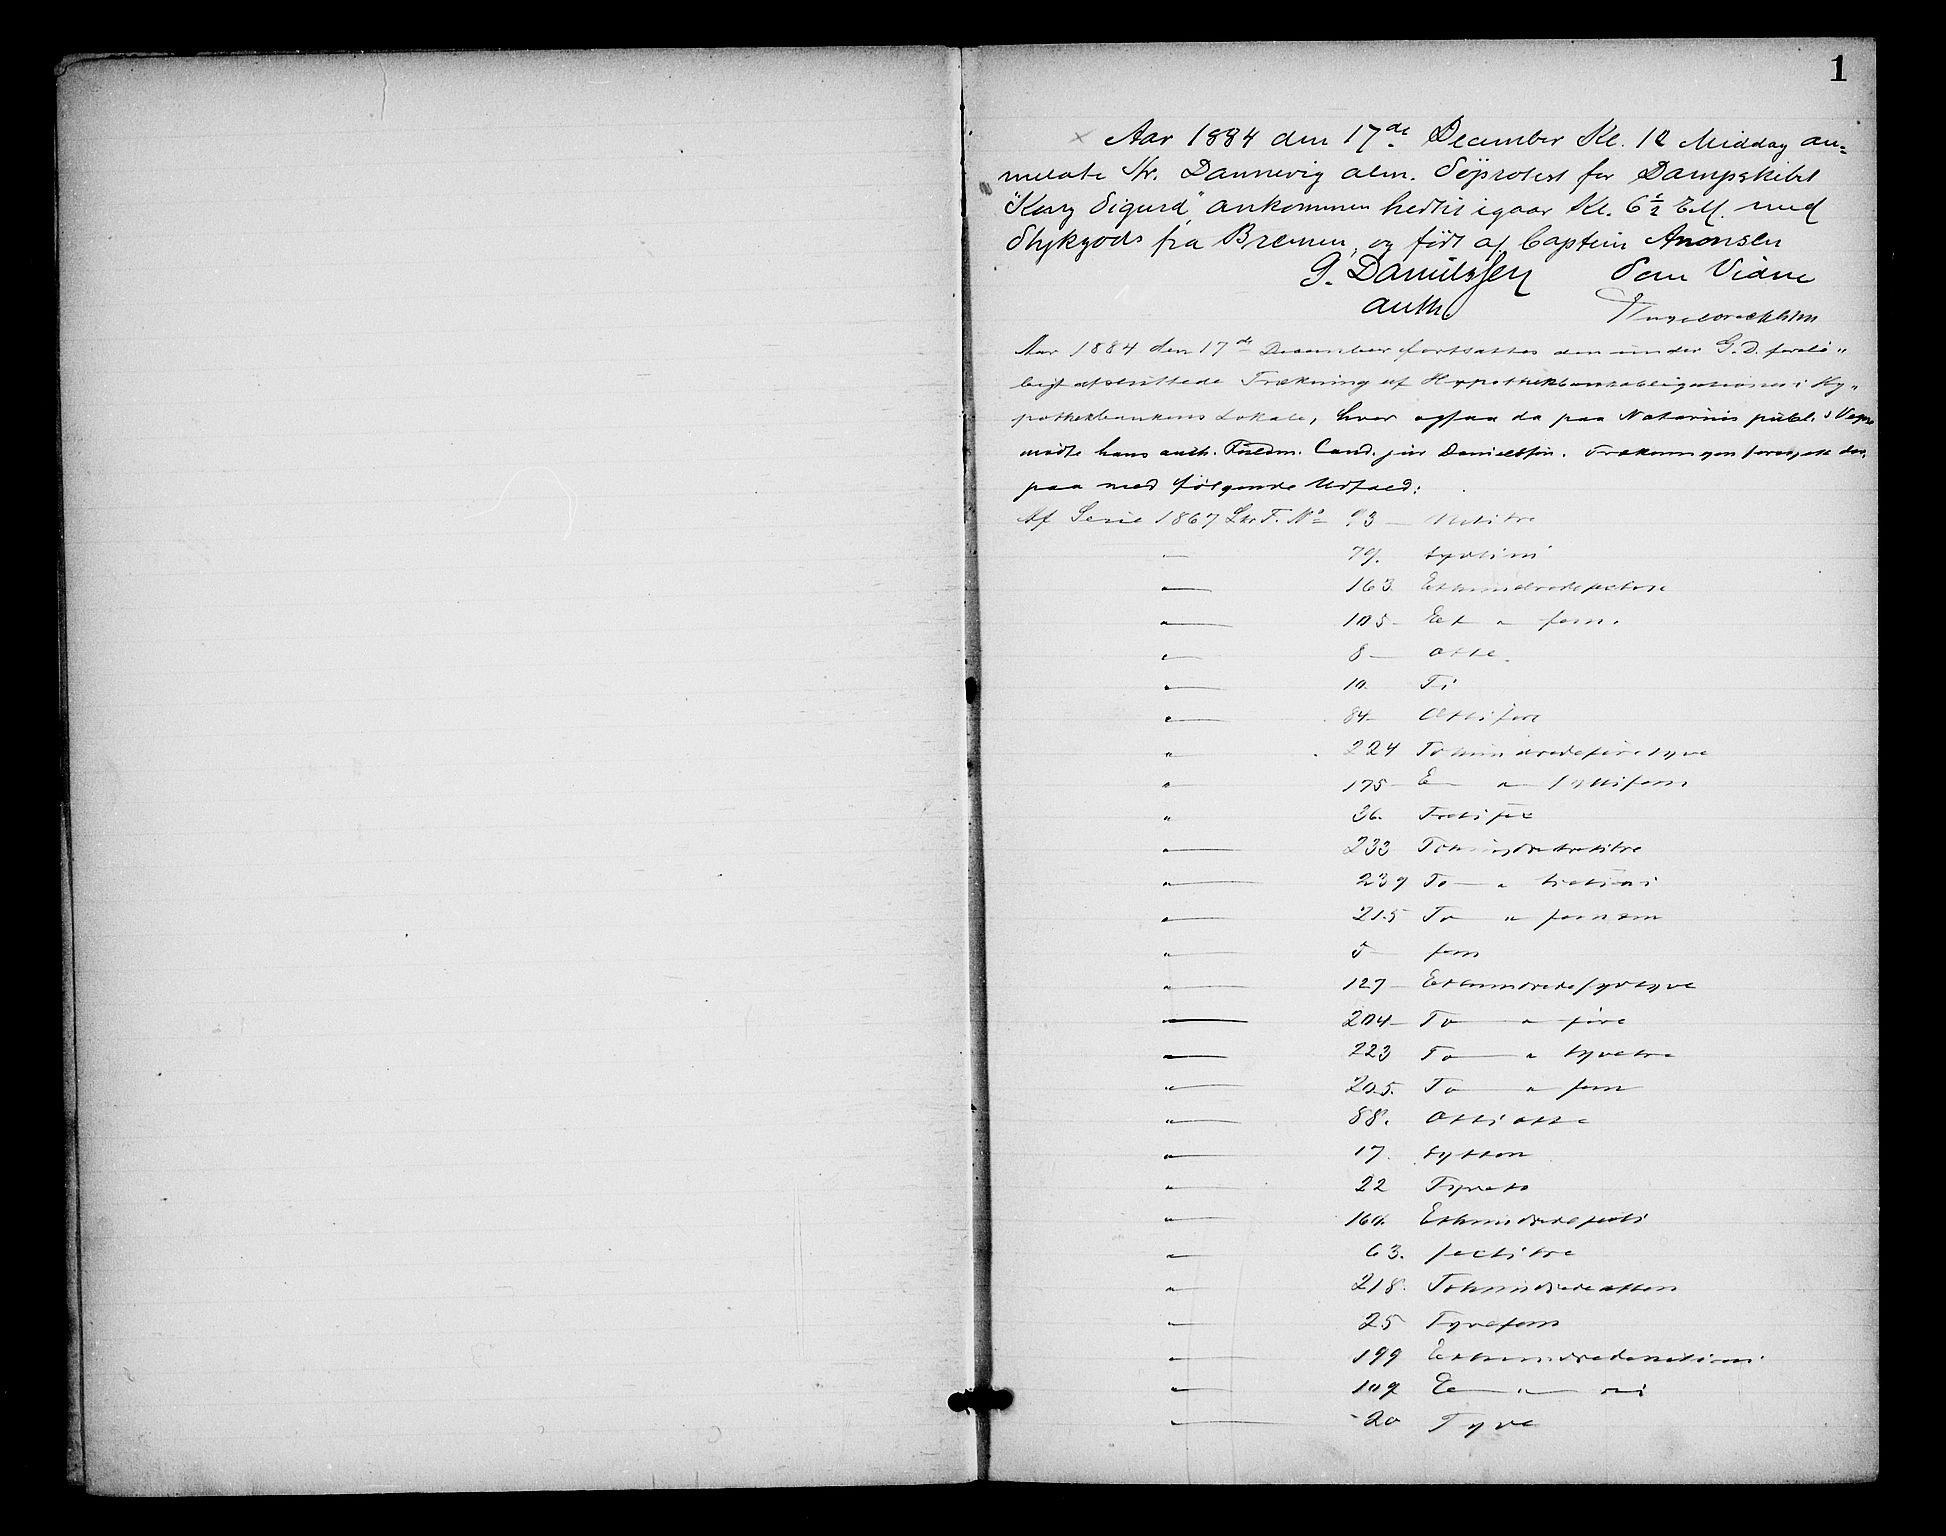 1
Aar 1884 den 17de December Kl. 12 Middag an=
meldte Hr. Dannevig alm. Søprotest for Dampskibet
"Kong Sigurd", ankommen hertil igaar Kl. 6½ E.M. med
Stykgods fra Bremen, og ført af Captein Anonsen
G. Danielssen
auth.
Aar 1884 den 17de December fortsattes den under G.D. forelø„
bigt afsluttede Trækning af Hypothekbankobligationer i Hy„
pothekbankens Lokale, hvor ogsaa da paa Notarius publ.s Vegne
mødte hans auth. Fuldm. Cand. jur Danielssen. Trækningen foregik der„
paa med følgende Udfald:
Af Serie 1867 Ltr F. No 93 — Nititre
— 79. syttini
" — 163. Ethundredesextitre
" — 105 — Et " fem.
" — 8 — Otte.
" — 10 Ti
" — 84 — Ottifire
" 224 Tohundredefiretyve
" 175 — E— " syttifem
" 36. Trettisex
" — 233 Tohundredetrettitre
" — 239 To — " trettini
" — 215 To " femten
" — 5 — fem
" — 127 — Ethundredesyvtyve
" — 204 — To — " fire
" — 223 To — " tyvetre
" — 205. To — " fem
" — 88. Ottiotte
" — 17. sytten
" — 22 Tyveto
" — 160. Ethundredesexti
" — 63. sextitre
" — 218. Tohundredeatten
— 25 Tyvefem
" — 199 Ethundredenittini
" — 109 Et — " — ni
" — 20 Tyve